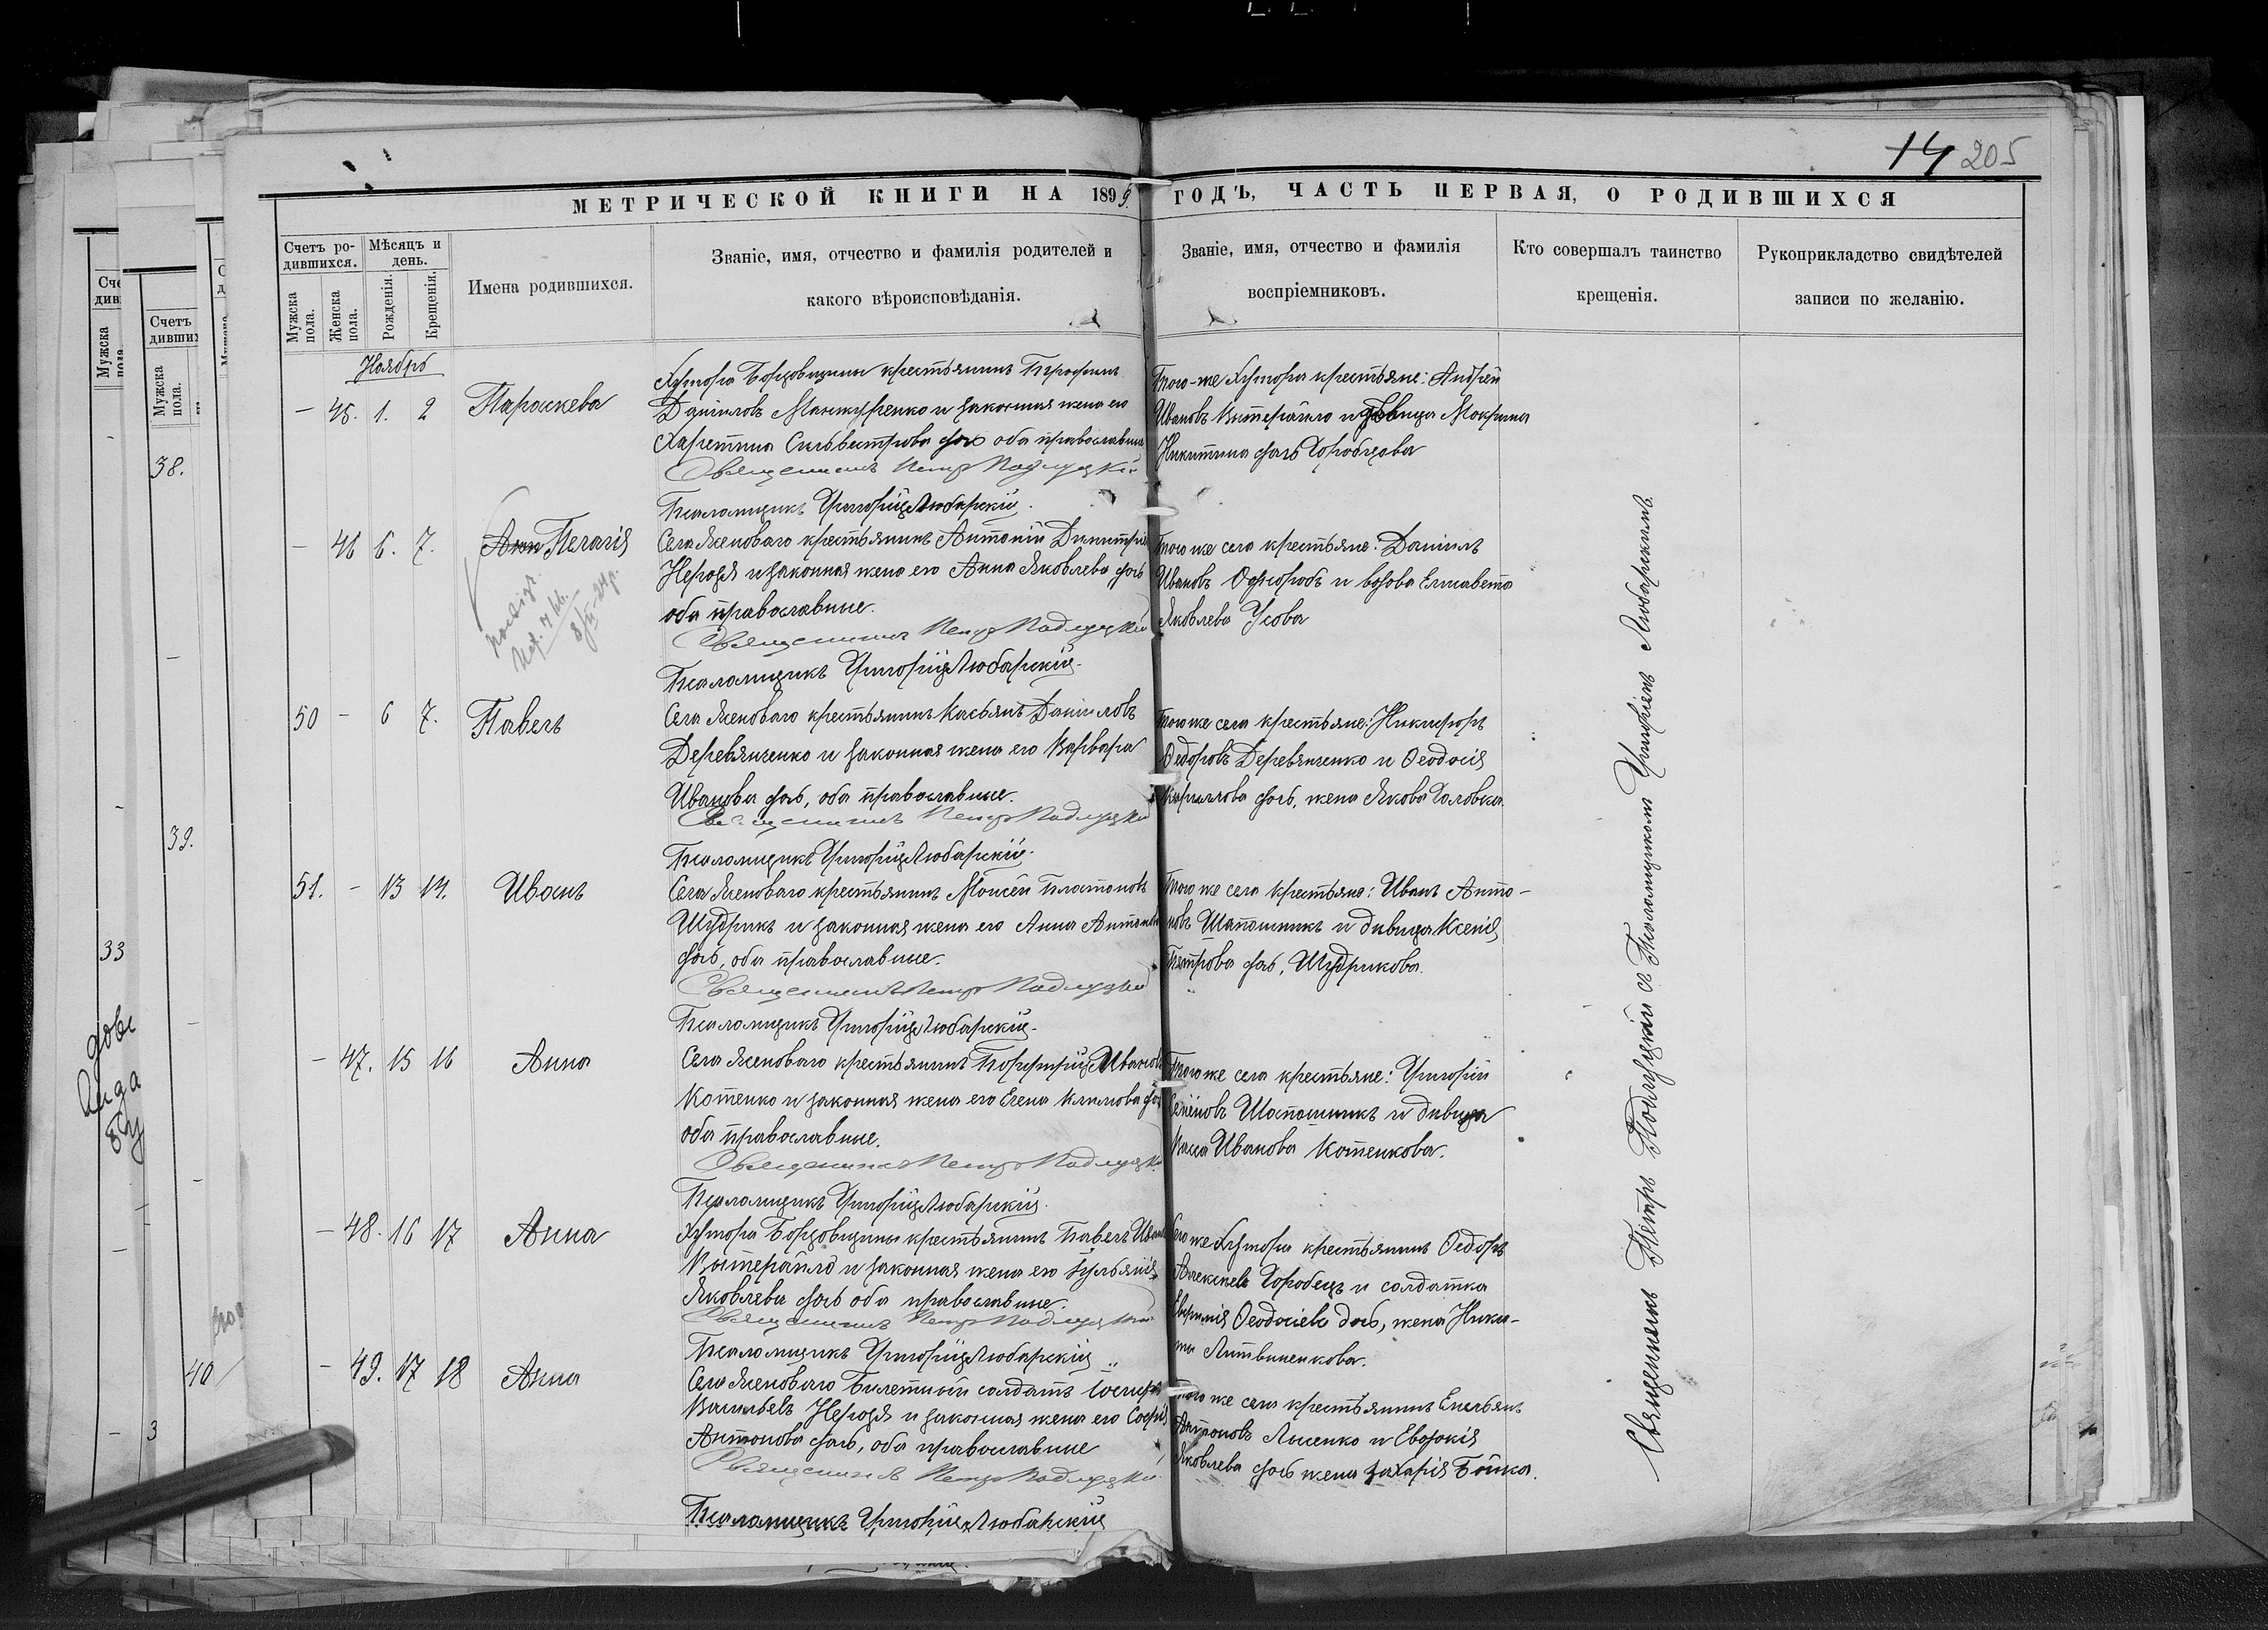 14 205
МЕТРИЧЕСКОЙ КНИГИ НА 1899 ГОДЪ, ЧАСТЬ ПЕРВАЯ, О РОДИВШИХСЯ
Счетъ ро-
дившихся.
Мужска
пола.
Женска
пола.
Мѣсяцъ и
день.
Рожденія.
Крещенія.
Имена родившихся.
Званіе, имя, отчество и фамилія родителей и
какого вѣроисповѣданія.
Званіе, имя, отчество и фамилія
воспріемниковъ.
Кто совершалъ таинство
крещенія.
Рукоприкладство свидѣтелей
записи по желанію.
Ноябрь
— 45. 1. 2 Параскева
Хутора крестьянинъ
Даніиловъ и законная жена его
Харитина Сильвестрова оба православные
Священникъ Петръ Подлуцкій
Псаломщикъ Григорій Любарскій.
Того-же хутора крестьяне: Андрей
Ивановъ и дѣвица Мокрина
Никитина дочь Горобцова
— 46 6. 7. Пелагія
Села Ясеноваго крестьянинъ Антоній Димитріев
Негода и законная жена его Анна Яковлева дочь
оба православные.
Священникъ Петръ Подлуцкій
Псаломщикъ Григорій Любарскій.
Того же села крестьяне: Даніилъ
Ивановъ и вдова Елисавета
Яковлева Усова
50 — 6 7. Павелъ
Села Ясеноваго крестьянинъ Касьянъ Даніиловъ
Деревянченко и законная жена его Варвара
Иванова дочь, оба православные.
Священникъ Петръ Подлуцкій
Псаломщикъ Григорій Любарскій.
Того же села крестьяне: Никифоръ
Ѳедоровъ Деревянченко и Ѳеодосія
Кириллова дочь, жена Якова Головка.
51. — 13 14. Иванъ
Села Ясеноваго крестьянинъ Моисей Платоновъ
Шудрикъ и законная жена его Анна Антонова
дочь, оба православные.
Священникъ Петръ Подлуцкій
Псаломщикъ Григорій Любарскій.
Того же села крестьяне: Иванъ Анто-
новъ Шапошникъ и дѣвица Ксенія
Петрова дочь, Шудрикова.
— 47. 15 16 Анна
Села Ясеноваго крестьянинъ Порфирій Ивановъ
Котенко и законная жена его Елена Климова
оба православные.
Священникъ Петръ Подлуцкій
Псаломщикъ Григорій Любарскій.
Того же села крестьяне: Григорій
Семёновъ Шапошникъ и дѣвица
Васса Иванова Котенкова.
— 48. 16 17 Анна
Хутора крестьянинъ Павелъ
и законная жена его Іуліанія
Яковлева дочь оба православные.
Священникъ Петръ Подлуцкій
Псаломщикъ Григорій Любарскій
Того же хутора крестьянинъ Ѳедоръ
Алексѣевъ Горобецъ и солдатка
Евфимія Ѳеодосіева дочь, жена Ники-
ты Литвиненкова.
— 49. 17 18 Анна
Села Ясеноваго билетный солдатъ Іосифъ
Васильевъ Негода и законная жена его Софія
Антонова дочь, оба православные
Священникъ Петръ Подлуцкій
Псаломщикъ Григорій Любарскій
Того же села крестьянинъ Емельянъ
Антоновъ Лысенко и Евдокія
Яковлева дочь жена Захарія Бойка.
Священникъ Петръ Подлуцкій съ Псаломщикомъ Григоріемъ Любарскимъ.
Счетъ
дивших
Мужска
пола.
38.
39.
33
40
3